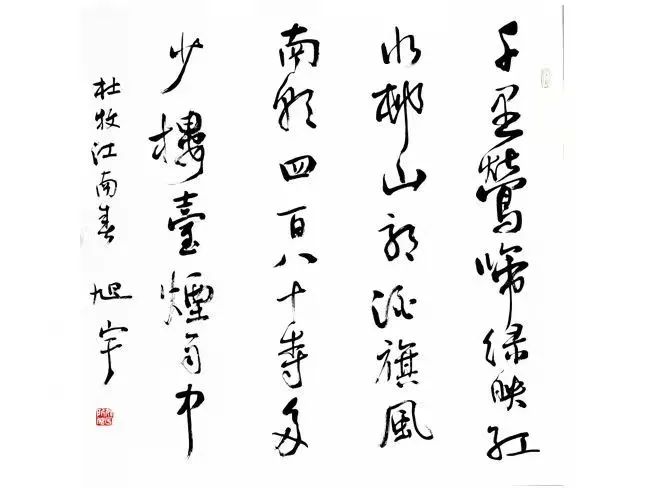 千里鶯啼绿映红
水邨山郭酒旗風
南朝四百八十寺多
少樓臺煙雨中
杜牧江南春 旭宇